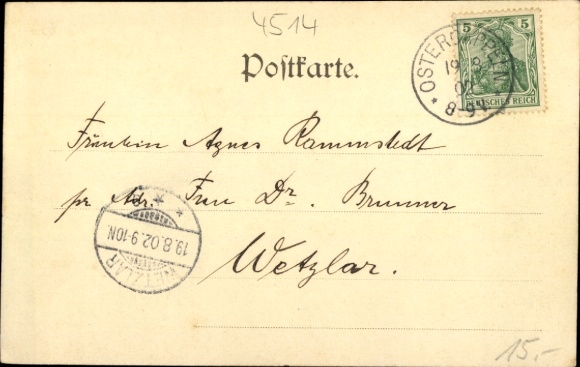 4514
Postkarte.
5 5
DEUTSCHES REICH
OSTERCAPPELN
19 8
02
8-9V.
Fräulein Agnes Rammstedt
pr. Adr. Frau Dr. Brunner
Wetzlar.
WETZLAR
19.8.02.9-10N.
15,-